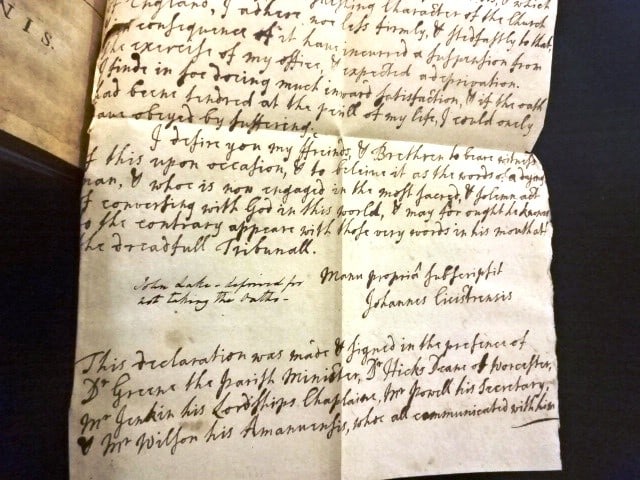 NIS.
of England, I adhere no less firmly, & stedfastly to that,
consequence of it have incurred a suspension from
the exercise of my office, & expected a deprivation.
I finde in soe doing much inward satisfaction, & if the oath
had beene tendred at the perill of my life, I could onely
have obeyed by suffering.
I desire you my freinds, & Brethren to beare witness
of this upon occasion, & to beleive it as the words of a dying
man, & who is now engaged in the most sacred, & solemn act
of conversing with God in this world, & may for ought he knows
to the contrary appear with those very words in his mouth at
the dreadfull Tribunall.
Manu propriâ subscripsit
Johannes Cicistrensis
John Lake - deprived for
not taking the Oaths -
This declaration was made & signed in the presence of
Dr Greene the Parish Minister, Dr Hicks Deane of Worcester,
Mr Jenkin his Lordships Chaplaine, Mr Powell his Secretary,
& Mr Wilson his Amanuensis, whoe all communicated with him